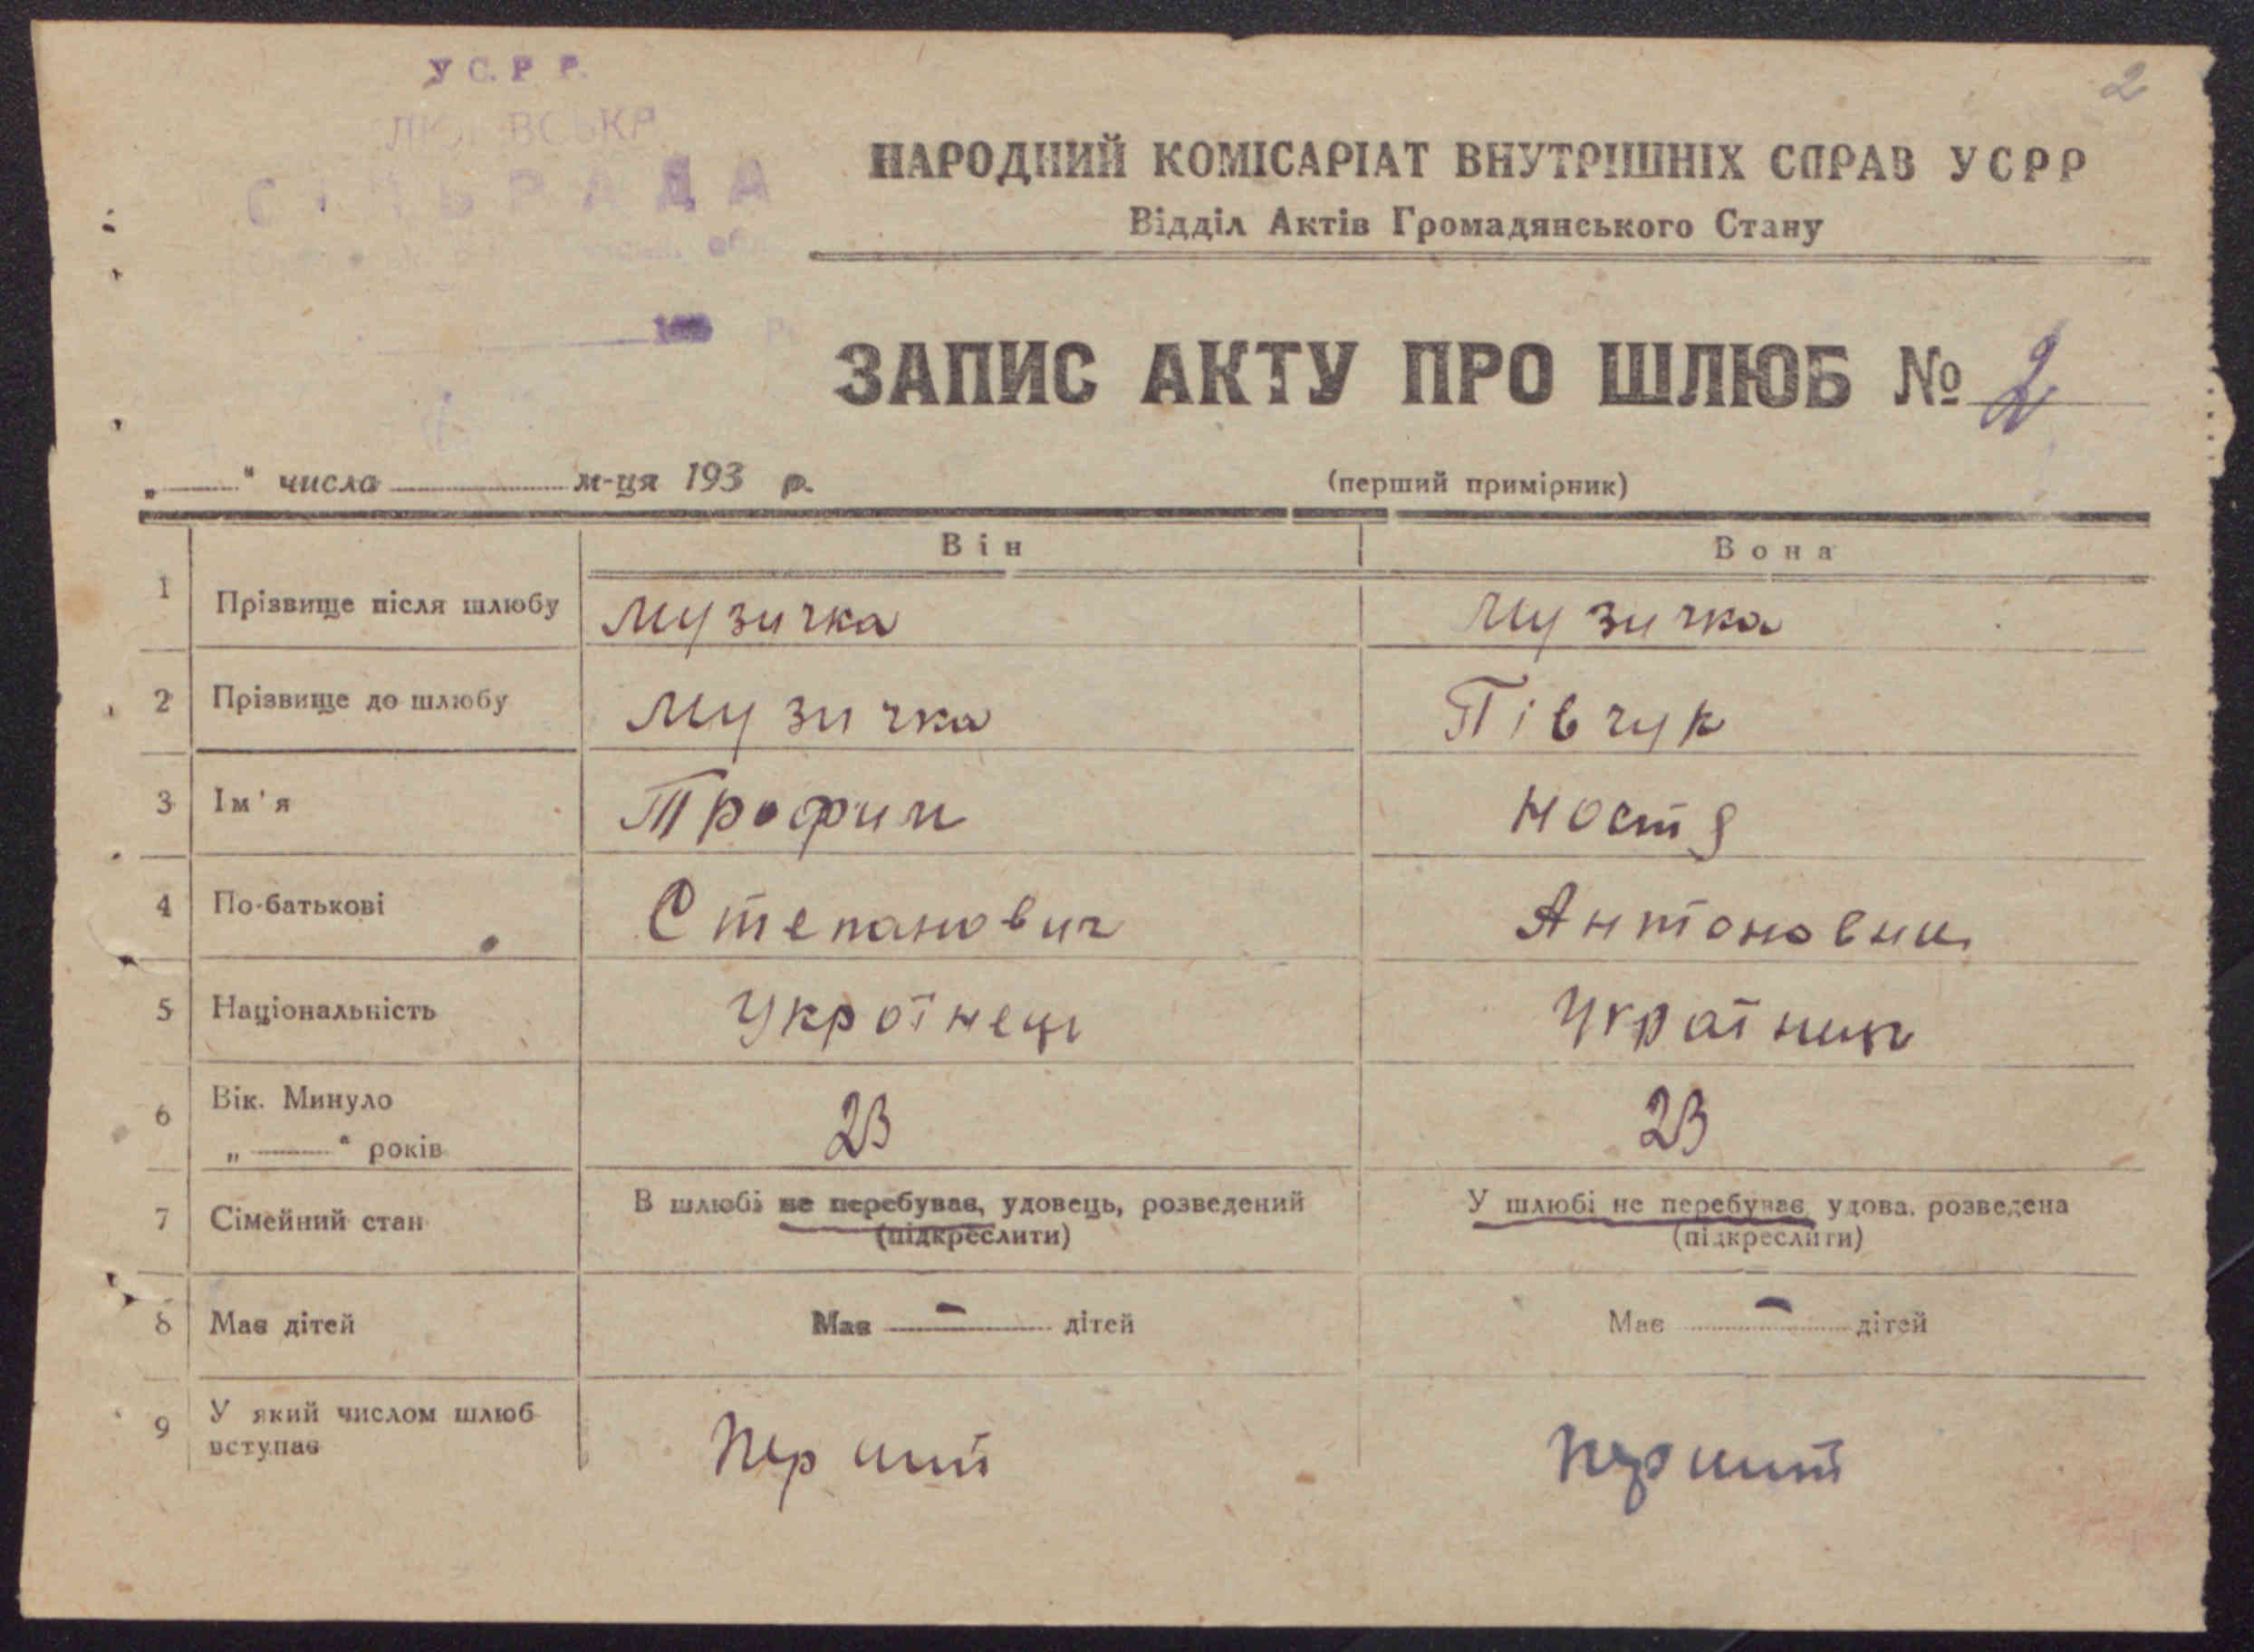 2
У С. Р Р.
СІЛЬРАДА
обл.
НАРОДНИЙ КОМІСАРІАТ ВНУТРІШНІХ СПРАВ УСРР
Відділ Актів Громадянського Стану
ЗАПИС АКТУ ПРО ШЛЮБ № 2
„ “ числа м-ця 193 р.
(перший примірник)
Він Вона
1 Прізвище після шлюбу Музичка Музичка
2 Прізвище до шлюбу Музичка Півчук
3 Ім'я Трофим Ностя
4 По-батькові Степанович Антоновни
5 Національність Укроїнець Україник
6 Вік. Минуло
„ “ років 23 23
7 Сімейний стан В шлюбі не перебуває, удовець, розведений У шлюбі не перебуває, удова, розведена
(підкреслити) (підкреслити)
8 Має дітей Має – дітей Має – дітей
9 У який числом шлюб
вступає Перший Перший